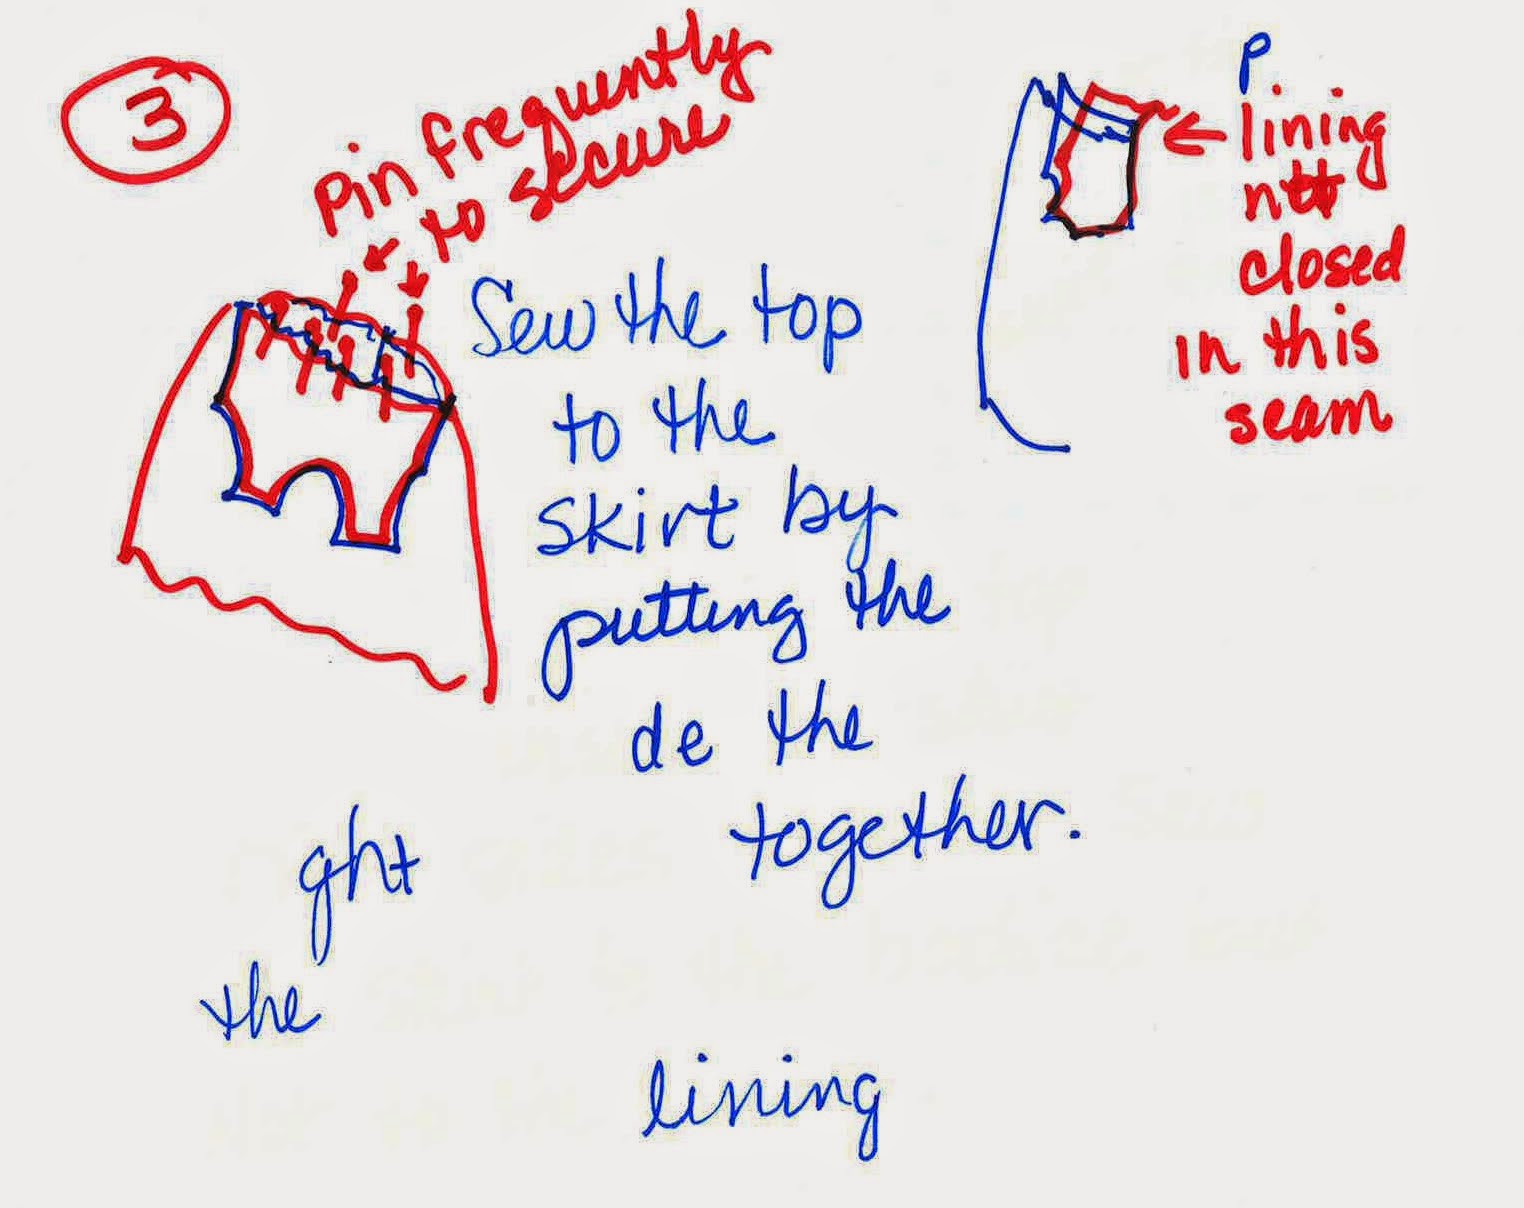 3
pin frequently
to secure
Sew the top
to the
skirt by
putting the
de the
ght together.
the
lining
P
lining
not
closed
in this
seam